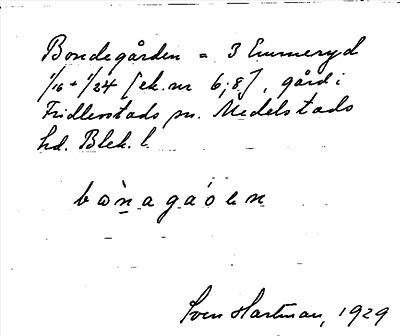 Bondegården = 3 Emmeryd
1/16 + 1/24 [ek. nr 6; 8], gård i
Fridlevstads sn. Medelstads
hd. Blek. l.
bɷ̀n̠agáoen
Sven Hartman, 1929